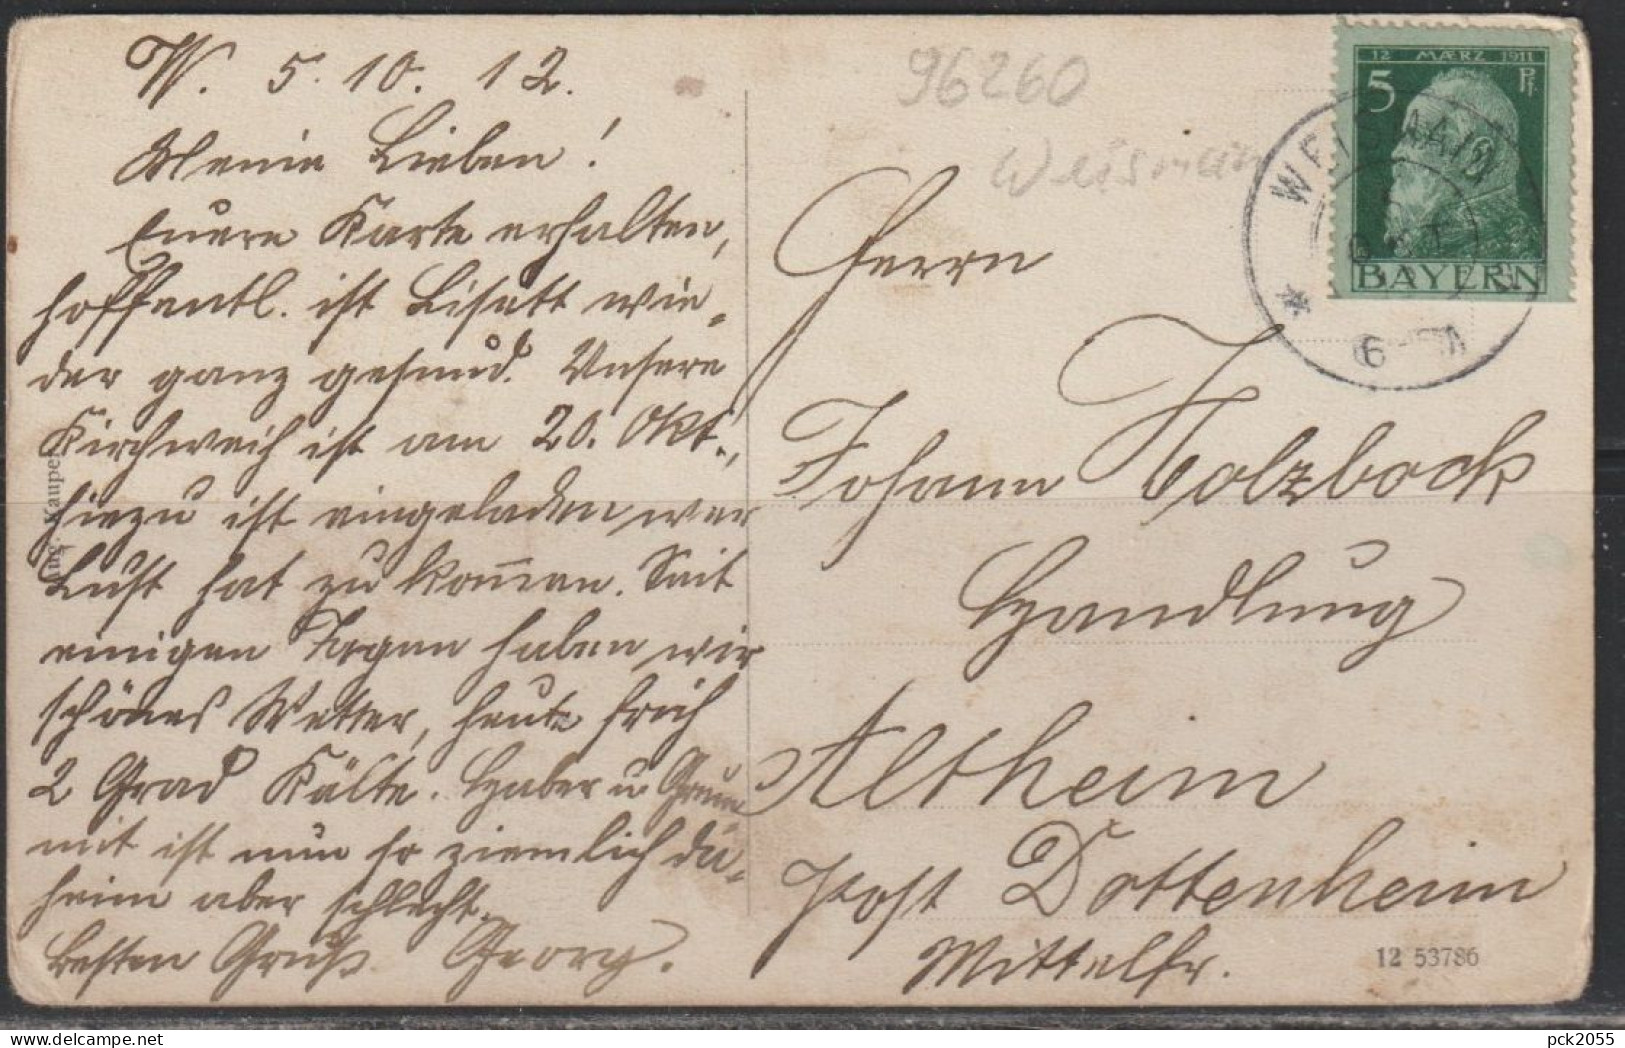 W. 5.10.12.
Meine Lieben!
Euere Karte erhalten,
hoffentl. ist Lisett wie-
der ganz gesund. Unsere
Kirchweih ist am 20. Okt.,
hiezu ist eingeladen wer
Lust hat zu kommen. Seit
einigen Tagen haben wir
schönes Wetter, heute früh
2 Grad Kälte. Haber u. Grum
mit ist nun so ziemlich da-
heim aber schlecht.
Besten Gruß Georg.
96260
Weismain
12 MÆRZ 1911
5 Pf.
BAYERN
WEISMAIN
Herrn
Johann Holzbock
Handlung
Altheim
Post Dottenheim
Mittelfr.
12 53786
pck2055